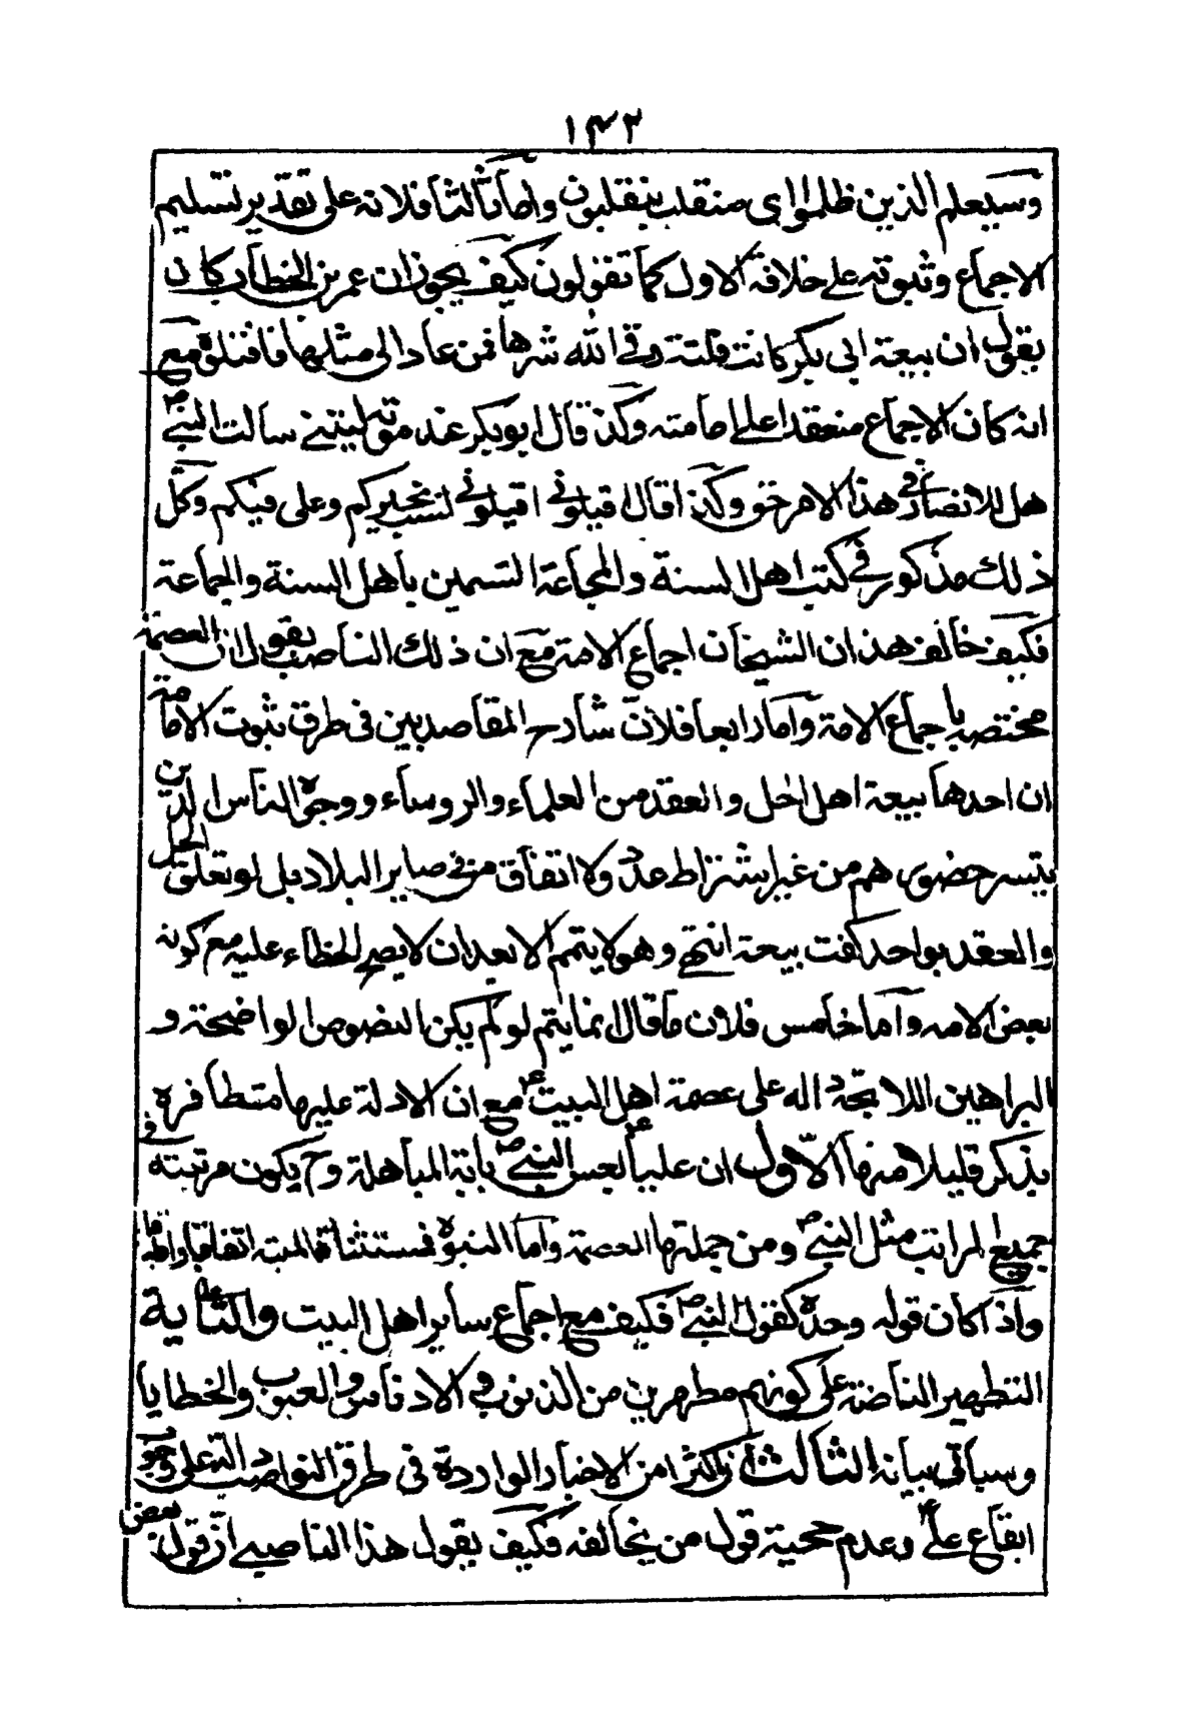 ١٤٢
وسيعلم الذين ظلموا اي منقلب ينقلبون واما ثالثا فلانه على تقدير تسليم
الاجماع وثبوته على خلافة الاول كما تقولون كيف يجوز ان عمر بن الخطاب كان
يقول ان بيعة ابى بكر كانت فلتة وقى الله شرها فمن عاد الى مثلها فاقتلوه مع
انه كان الاجماع منعقدا على امامته وكذا قال ابو بكر عند موته ليتنے سالت النبے ص
هل للانصار في هذا الامر حق وكذا قال اقيلونے اقيلونے لست بخيركم وعلى فيكم وكل
ذلك مذكور في كتب اهل السنة والجماعة المتسمين باهل السنة والجماعة
فكيف خالف هذان الشيخان اجماع الامة مع ان ذلك الناصب يقول ان العصمة
مختصة باجماع الامة واما رابعا فلان شارح المقاصد بين في طرق ثبوت الامامة
ان احدها بيعة اهل الحل والعقد من العلماء والروساء ووجوه الناس الذين
يتيسر حضورهم من غير اشتراط عدد ولا اتفاق من فى ساير البلاد بل لو تعلق الحل
والعقد بواحد كفت بيعته انتهى وهو لا يتم الا بعد ان لا يصح الخطاء عليه مع كونه
بعض الامه واما خامس فلان ما قال انما يتم لو لم يكن النصوص الواضحة و
البراهين اللايحة داله على عصمة اهل البيت ع مع ان الادلة عليها متظافرة
نذكر قليلا منها الاول ان عليا ع نفس النبے ص باية المباهلة وح يكون مرتبته في
جميع المراتب مثل النبے ص ومن جملتها العصمة واما النبوة فمستثناة البتة اتفاقا
واذا كان قوله وحده كقول النبے ص فكيف مع اجماع ساير اهل البيت ع والثانى اية
التطهير الناصة على كونهم مطهرين من الذنوب والادناس والعيوب والخطايا
وسياتى بيانه الثالث ان كثيرا من الاخبار الواردة فى طرق النواصب دالة على وجوب
اتباع على ع وعدم حجية قول من يخالفه فكيف يقول هذا الناصبے ان قول بعض